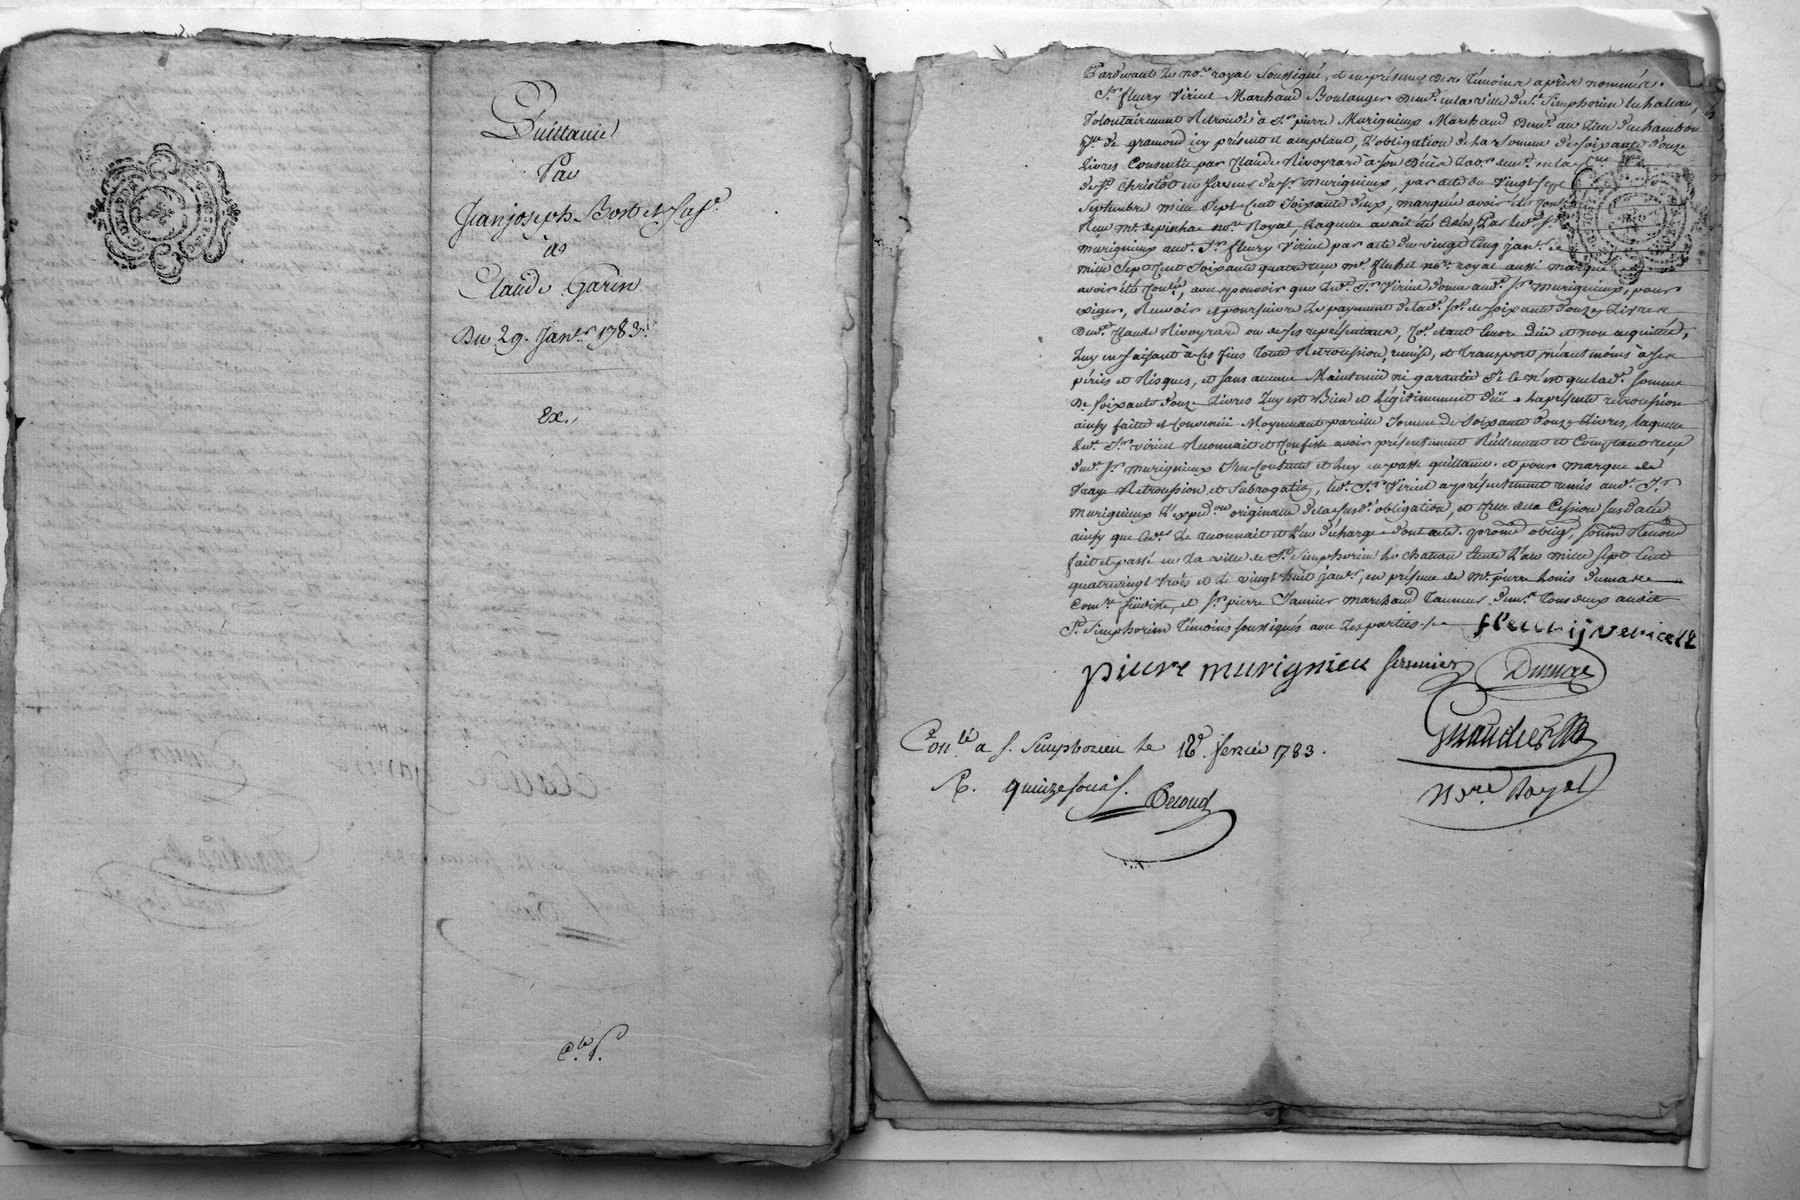 Quittance
Par
Jean joseph Bost et sa fe.
à
Claude Garin
Du 29. Janr. 1783.
Ex.
Cle. f.
Pardevant Le nore. royal Soussigné, et en présence des témoins après nommés.
Sr. fleury Viricel Marchand Boulanger demt. en la ville de St. Simphorien le chateau,
Volontairement Retrocede à Sr. pierre Murigneux Marchand demt. au lieu du chambon
psse. de gramond icy présent et acceptant, L'obligation de la somme de soixante douze
Livres Consentie par Claude Rivoyrard à son décès Labr. demt. en la
de St. Christôt en faveur du Sr. murigneux, par acte du vingt sept
Septembre mille Sept Cent Soixante deux, marquée avoir été
Reçue Me. depinhac nore. Royal, Laquelle avait été Cédée, Par led. Sr.
murigneux aud. Sr. fleury Viricel par acte du vingt Cinq janr.
mille Sept Cent Soixante quatre reçu Me. nore. royal aussi marqué
avoir été Conlé., avec pouvoir que led. Sr. Viricel donne aud. Sr. murigneux, pour
exiger, Recevoir et poursuivre Le payement de lad. se. de soixante douze Livres
dud. Claude Rivoyrard ou de ses représentans, se. étant encore düe et non acquittée,
Luy en faisant à ces fins toute Retrocession, remise, et transport, néantmoins à ses
périls et Risques, et sans aucune Maintenüe ni garantie Si ce n'est que lad. somme
De soixante douze Livres Luy est Bien et Légitimement düe. la présente retrocession
ainsy faite et Convenüe Moyennant pareille Somme de Soixante douze Livres, laquelle
led. Sr. viricel Reconnait et Confesse avoir présentement Réellement et Comptant reçue
dud. Sr. murigneux s'en Contente et Luy en passe quittance. et pour marque de
Vraye Retrocession et Subrogation, led. Sr. Viricel a présentement remis aud. Sr.
murigneux L'expedon. originalle de la susd. obligation, et Celle de la Cession sus datée
ainsy que led. Le reconnait et L'en décharge dont acte. promt. oblig. soumn. Renond.
fait et passé en La ville de St. Simphorien Le chateau Etude L'an mille sept Cent
quatrevingt trois et Le vingt huit janr., en présence de Me. pierre Louis dumas
Comre. feüdiste, et Sr. pierre Saunier marchand Tanneur demt. tous deux audit
St. Simphorien témoins soussignés avec Les parties.
fleury vericelle
pieere murignieu
Dumas
Nore. Royal
Conlé. a s. Simphorien le 12. fevrier 1783.
R. quinze sous.